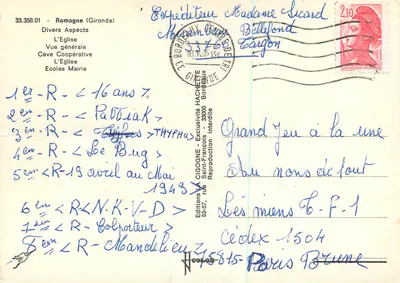 33.358.01 - Romagne (Gironde)
Divers Aspects
L'Eglise
Vue générale
Cave Coopérative
L'Eglise
Ecoles Mairie
Expéditeur Madame Sicard
Bellefond
33760
Targon
2,10
33 BORDEAUX
GIRONDE
1er - R - < 16 ans ?
2em - R - < Pabbiak >
3em - R - < THYPHUS >
4em - R - < Le Bug >
5em - R - 19 avril au Mai
1943 >
6em < R < N - K - V - D >
7em - R - Colporteur >
8em - R - Mandelieu >
Editions LA CIGOGNE - Exclusivité HACHETTE
53-57, rue Saint-François - 33000 Bordeaux
Reproduction interdite
Grand Jeu à la une
Au nons de tout
Les miens T - F - 1
Cédex 1504
75815 - Paris Brune